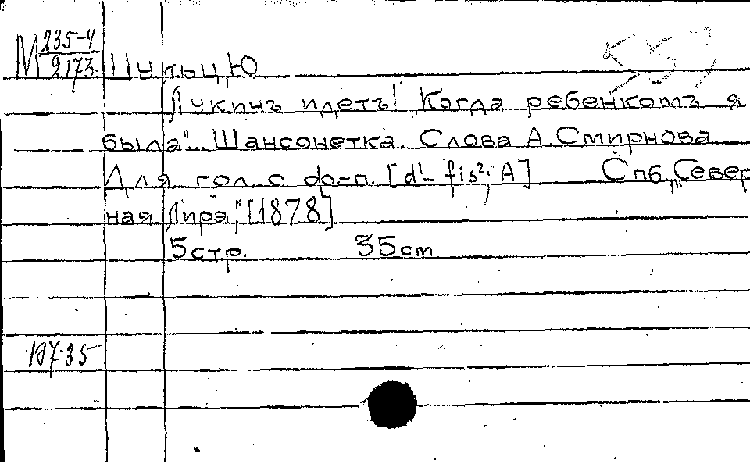 М 235-4
2173
Пульц Ю
Лукинъ идетъ! „Когда ребенкомъ я
была". Шансонетка. Слова А. Смирнова
Для гол. с ф-п. [d¹- fis²; A] Спб, „Север
ная Лира", [1878]
5 стр. 35 см
107-35